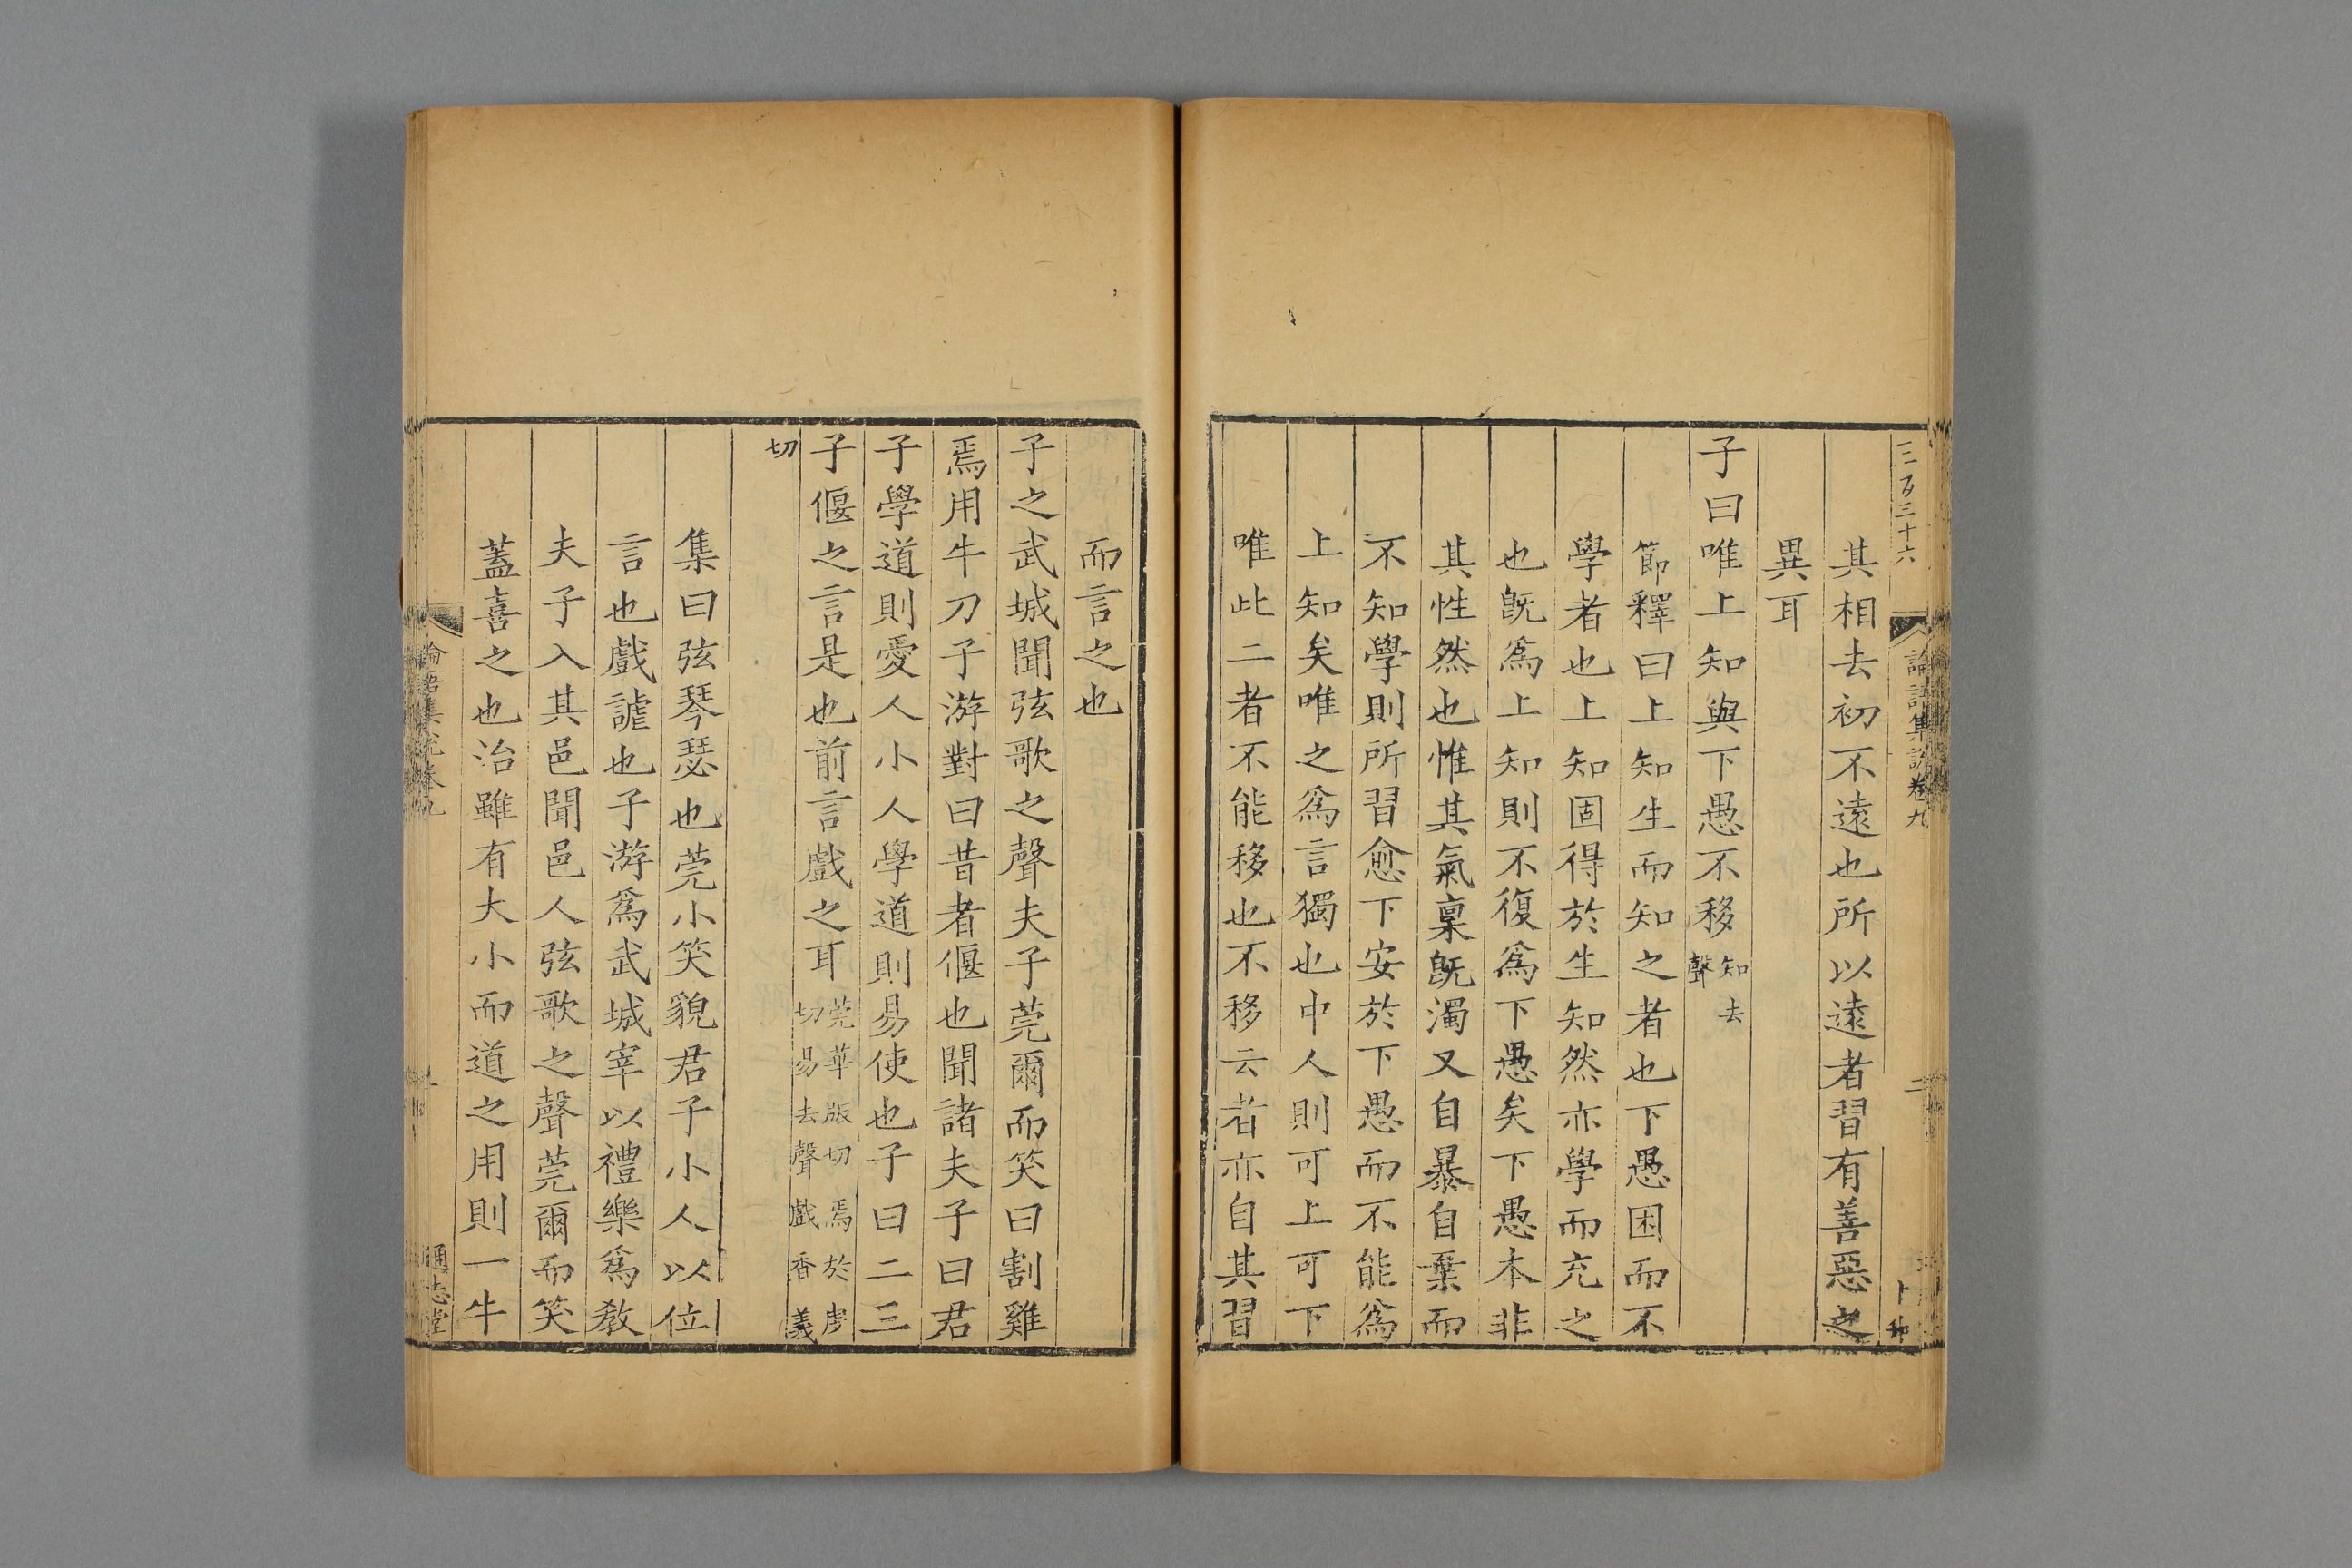 三百三十六
論語集說卷九
二
其相去初不遠也所以遠者習有善惡之
異耳
子曰唯上知與下愚不移知去聲
節釋曰上知生而知之者也下愚困而不
學者也上知固得於生知然亦學而充之
也旣爲上知則不復爲下愚矣下愚本非
其性然也惟其氣稟旣濁又自暴自棄而
不知學則所習愈下安於下愚而不能爲
上知矣唯之爲言獨也中人則可上可下
唯此二者不能移也不移云者亦自其習
而言之也
子之武城聞弦歌之聲夫子莞爾而笑曰割雞
焉用牛刀子游對曰昔者偃也聞諸夫子曰君
子學道則愛人小人學道則易使也子曰二三
子偃之言是也前言戲之耳莞華版切焉於虔切易去聲戲香義
切
集曰弦琴瑟也莞小笑貌君子小人以位
言也戲謔也子游爲武城宰以禮樂爲教
夫子入其邑聞邑人弦歌之聲莞爾而笑
蓋喜之也治雖有大小而道之用則一牛
論語集說卷九
通志堂